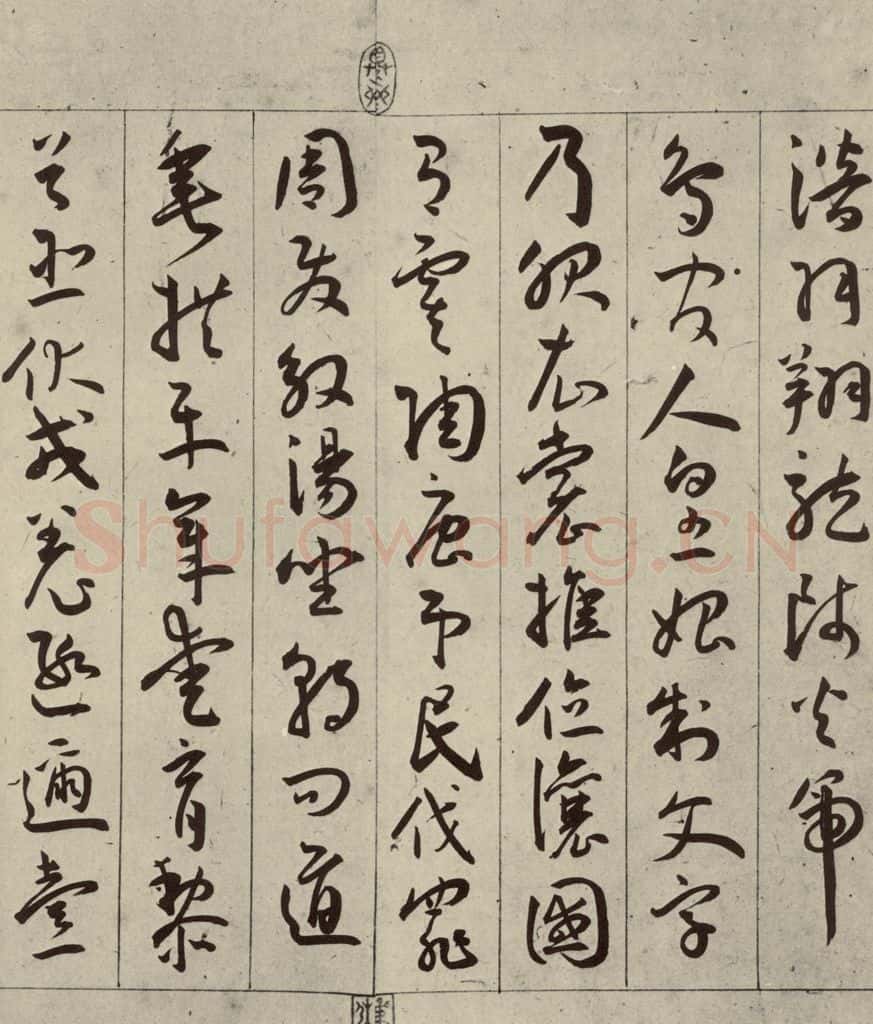 潛羽翔龍師火帝
鳥官人皇始制文字
乃服衣裳推位讓國
有虞陶唐弔民伐罪
周發殷湯坐朝問道
垂拱平章愛育黎
首臣伏戎羌遐邇壹
Shufawang.CN